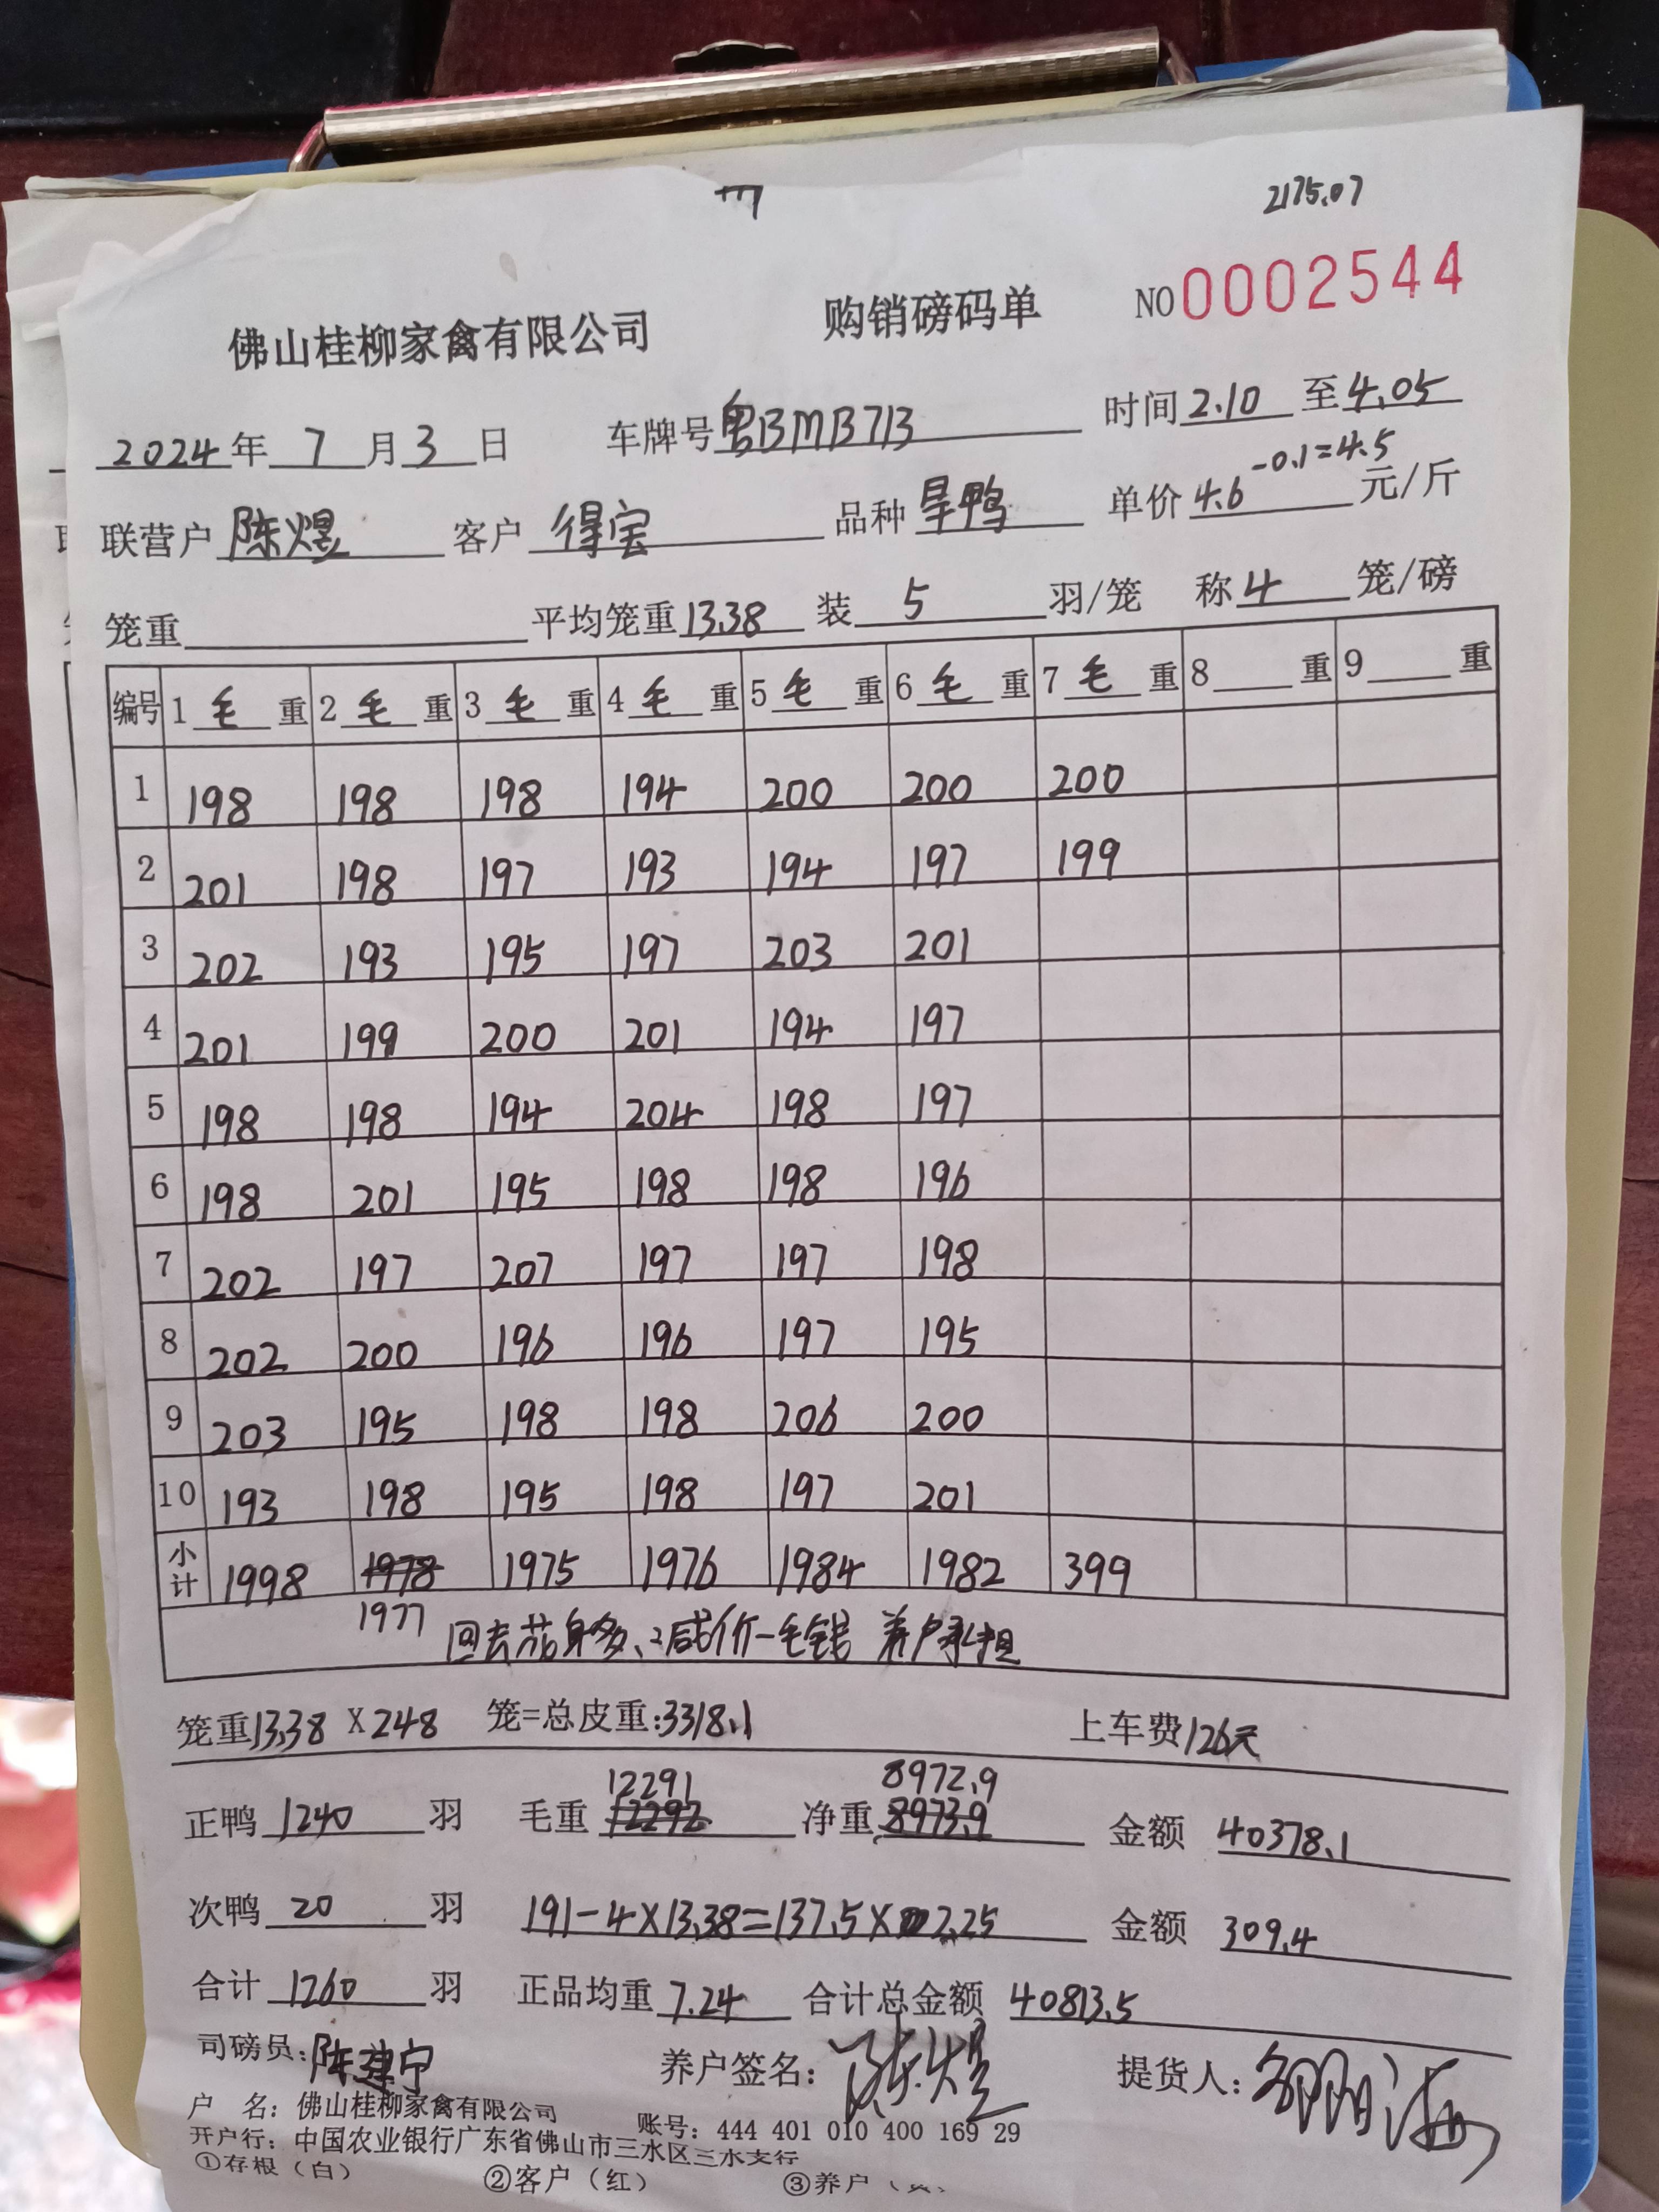 2175.07
佛山桂柳家禽有限公司 购销磅码单 NO 0002544
2024年 7月3日 车牌号粤BMB713 时间2.10至4.05
-0.1=4.5
联营户 陈煜 客户 得宝 品种 旱鸭 单价4.6 元/斤
笼重 平均笼重13.38 装 5 羽/笼 称4 笼/磅
编号 1毛重 2毛重 3毛重 4毛重 5毛重 6毛重 7毛重 8重 9重
1 198 198 198 194 200 200 200
2 201 198 197 193 194 197 199
3 202 193 195 197 203 201
4 201 199 200 201 194 197
5 198 198 194 204 198 197
6 198 201 195 198 198 196
7 202 197 207 197 197 198
8 202 200 196 196 197 195
9 203 195 198 198 206 200
10 193 198 195 198 197 201
小计 1998 1978 1975 1976 1984 1982 399
1977
回去 多、减价一毛钱 养户承担
笼重13.38 X 248 笼=总皮重:3318.1 上车费126元
12291 8972.9
正鸭 1240 羽 毛重 12292 净重 8973.9 金额 40378.1
次鸭 20 羽 191-4X13.38=137.5X2.25 金额 309.4
合计 1260 羽 正品均重 7.24 合计总金额 40813.5
司磅员:陈建宁 养户签名: 陈煜 提货人:
户 名: 佛山桂柳家禽有限公司 账号: 444 401 010 400 169 29
开户行: 中国农业银行广东省佛山市三水区三水支行
①存根(白) ②客户(红) ③养户(